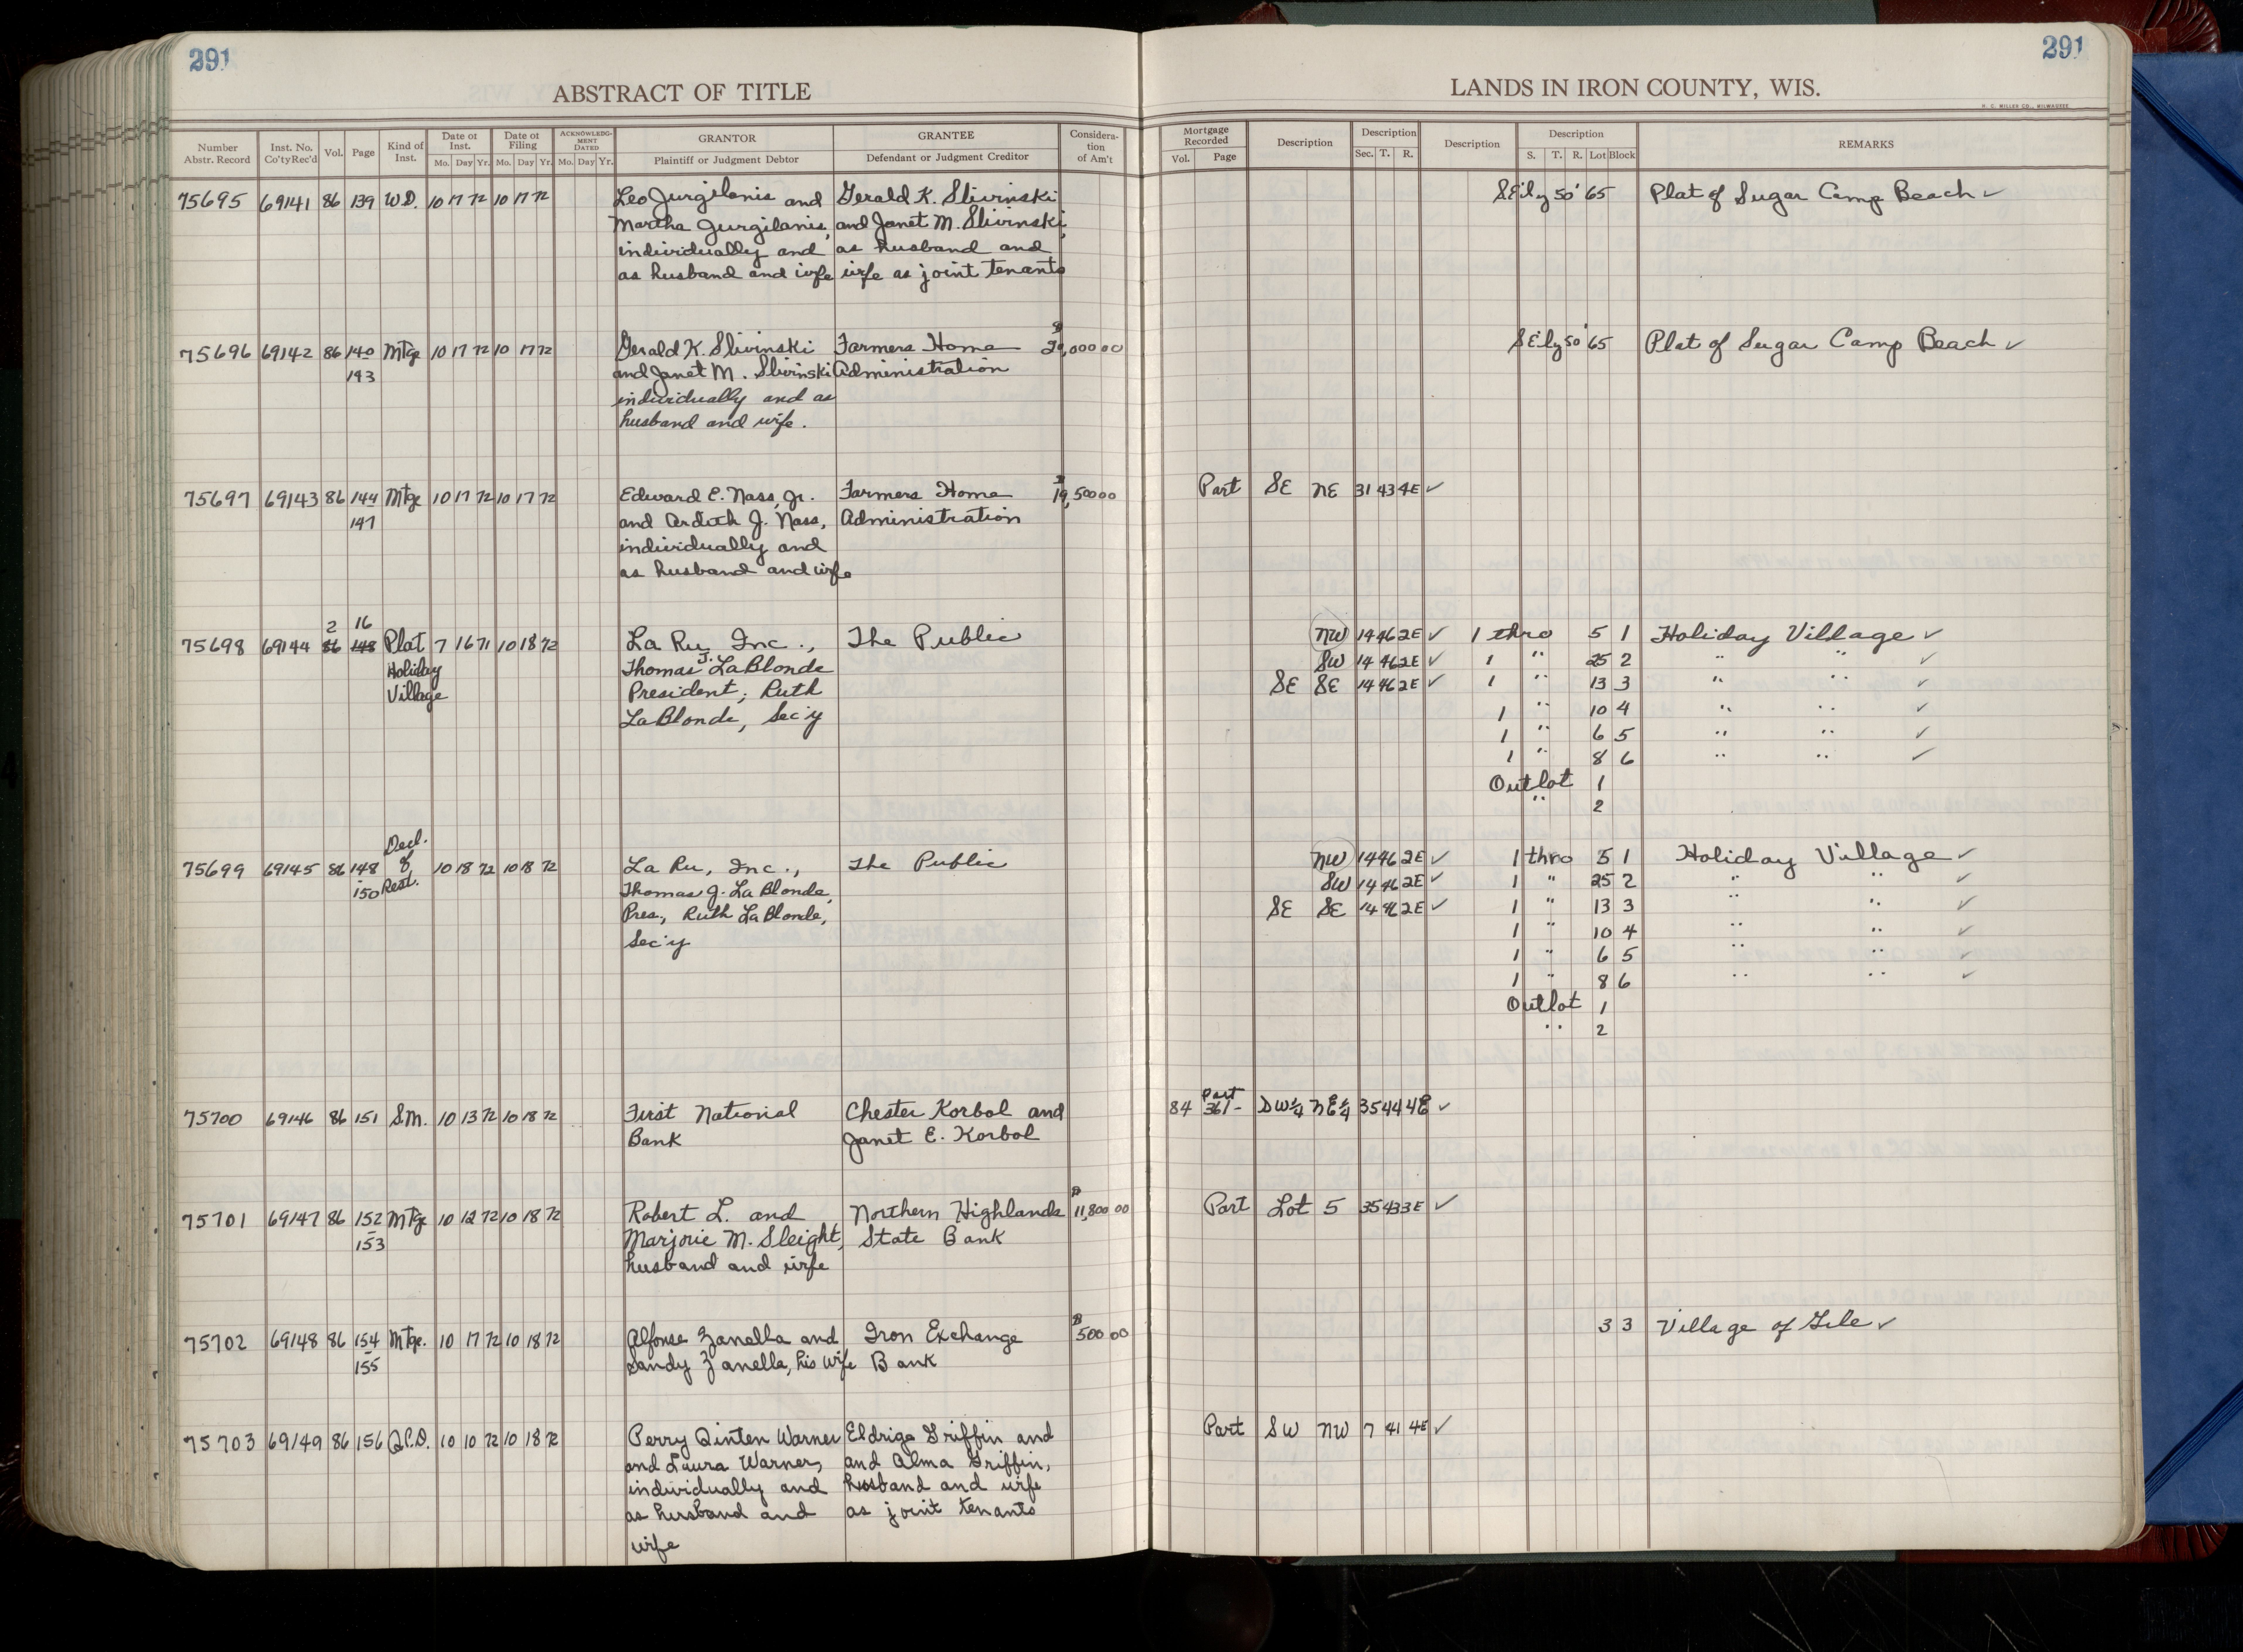 291
291
ABSTRACT OF TITLE
LANDS IN IRON COUNTY, WIS.
H. C. MILLER CO., MILWAUKEE
Number Abstr. Record Inst. No. Co'ty Rec'd Vol. Page Kind of Inst. Date of Inst. Mo. Day Yr. Date of Filing Mo. Day Yr. ACKNOWLEDGMENT DATED Mo. Day Yr. GRANTOR Plaintiff or Judgment Debtor GRANTEE Defendant or Judgment Creditor Considera-tion of Am't
Mortgage Recorded Vol. Page Description Description Sec. T. R. Description Description S. T. R. Lot Block REMARKS
75695 69141 86 139 W.D. 10 17 72 10 17 72 Leo Jurgilanis and Gerald K. Slivinski SE'ly 50' 65 Plat of Sugar Camp Beach ✓
Martha Jurgilanis, and Janet M. Slivinski,
individually and as husband and
as husband and wife wife as joint tenants
75696 69142 86 140 Mtge 10 17 72 10 17 72 Gerald K. Slivinski Farmers Home SE'ly 50' 65 Plat of Sugar Camp Beach ✓
143 and Janet M. Slivinski Administration
individually and as
husband and wife.
75697 69143 86 144 Mtge 10 17 72 10 17 72 Edward E. Nass, Jr. Farmers Home $ 19,500 00 Part SE NE 31 43 4E ✓
147 and Ardith J. Nass, Administration
individually and
as husband and wife
2 16
75698 69144 86 148 Plat 7 16 71 10 18 72 La Ru, Inc., The Public NW 14 46 2E ✓ 1 thro 5 1 Holiday Village ✓
Holiday Thomas J. LaBlonde SW 14 46 2E ✓ 1 " 25 2 " " ✓
Village President; Ruth SE SE 14 46 2E ✓ 1 " 13 3 " " ✓
LaBlonde, Sec'y 1 " 10 4 " " ✓
1 " 6 5 " " ✓
1 " 8 6 " " ✓
Outlot 1
" 2
Decl.
75699 69145 86 148 of 10 18 72 10 18 72 La Ru, Inc., The Public NW 14 46 2E ✓ 1 thro 5 1 Holiday Village ✓
150 Rest. Thomas J. La Blonde, SW 14 46 2E ✓ 1 " 25 2 " " ✓
Pres., Ruth La Blonde, SE SE 14 46 2E ✓ 1 " 13 3 " " ✓
Sec'y 1 " 10 4 " " ✓
1 " 6 5 " " ✓
1 " 8 6 " " ✓
Outlot 1
" 2
Part
75700 69146 86 151 S.M. 10 13 72 10 18 72 First National Chester Korbol and 84 361- SW¼ NE¼ 35 44 4E ✓
Bank Janet E. Korbol
75701 69147 86 152 Mtge 10 12 72 10 18 72 Robert L. and Northern Highlands $ 11,800 00 Part Lot 5 35 43 3E ✓
153 Marjorie M. Sleight, State Bank
husband and wife
75702 69148 86 154 Mtge. 10 17 72 10 18 72 Alfonse Zanella and Iron Exchange $ 500 00 3 3 Village of Gile ✓
155 Sandy Zanella, his wife Bank
75703 69149 86 156 Q.C.D. 10 10 72 10 18 72 Perry Qinten Warner Eldrige Griffin and Part SW NW 7 41 4E ✓
and Laura Warner, and Alma Griffin,
individually and husband and wife
as husband and as joint tenants
wife